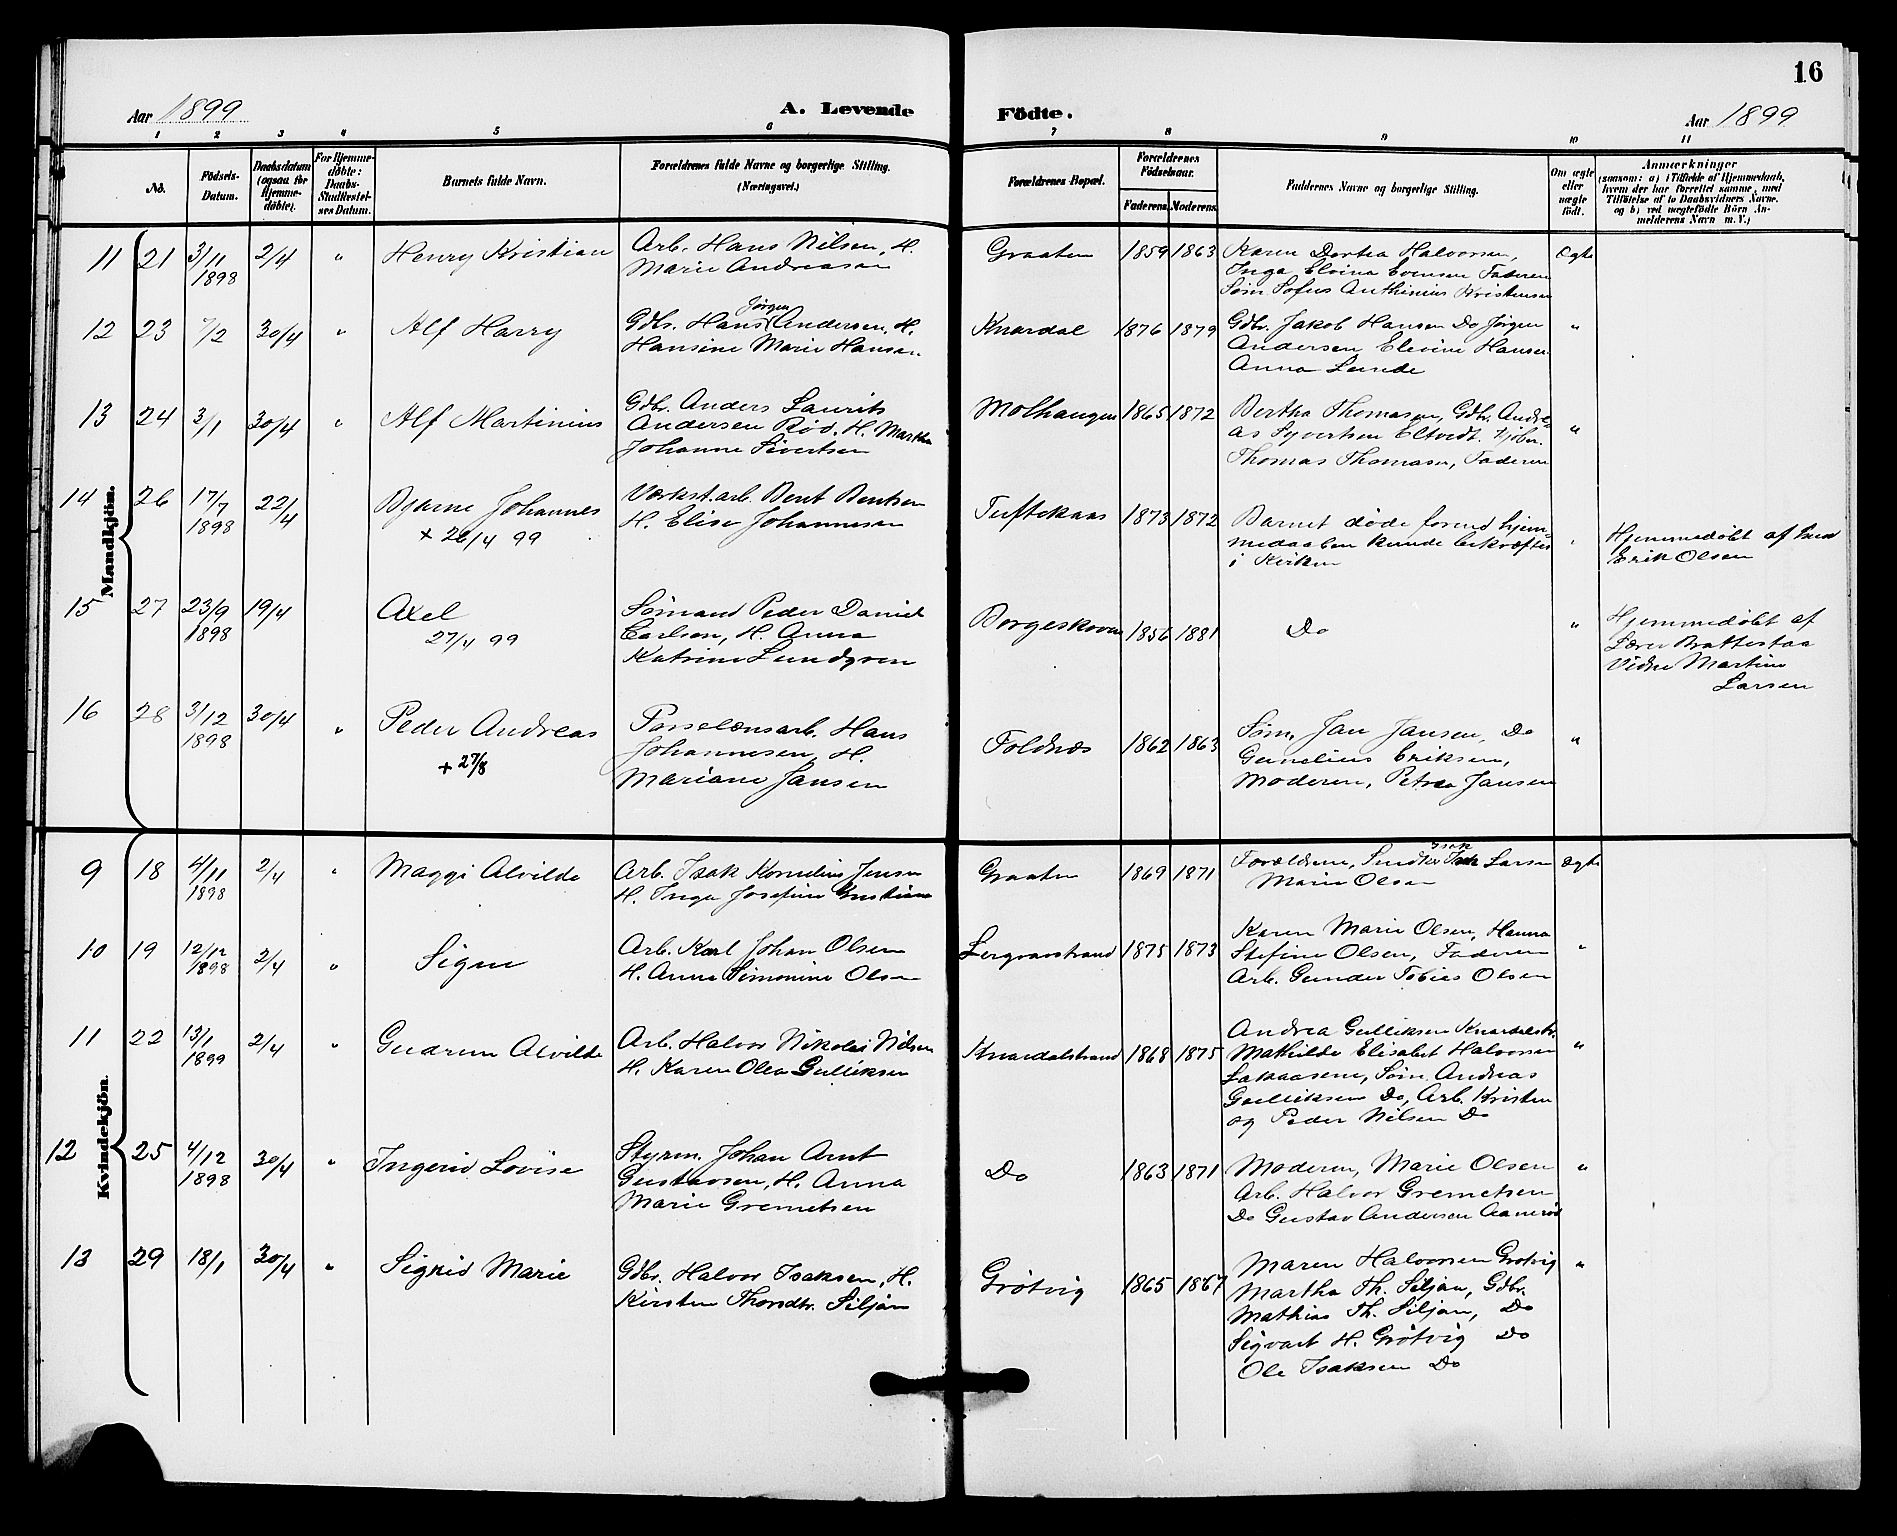 16
Aar 1899 A. Levende Födte. Aar 1899
1 2 3 4 5 6 7 8 9 10 11
No.
Födsels-
Datum.
Daabsdatum
(ogsaa for
Hjemme-
döbte).
For Hjemme-
döbte:
Daabs-
Stadfæstel-
ses Datum.
Barnets fulde Navn.
Forældrenes fulde Navne og borgerlige Stilling.
(Næringsvei.)
Forældrenes Bopæl.
Forældrenes
Födselsaar.
Faderens. Moderens.
Faddernes Navne og borgerlige Stilling.
Om ægte
eller
uægte
født.
Anmærkninger
(saasom: a) i Tilfælde af Hjemmedaab,
hvem der har forrettet samme, med
Tilföielse af to Daabsvidners Navne.
og b) ved uægtefödte Börn An-
melderens Navn m. V.)
Mandkjön.
11 21 3/11 1898 2/4 " Henry Kristian
Arb. Hans Nilsen, H.
Marie Andreasen
Graaten 1859 1863
Karen Dorthea Halvorsen,
Inga Elvina Evensen Faderen
Søm Sofus Anthinius Kristensen
Ægte
12 23 7/2 30/4 " Alf Harry
Gdbr. Hans Jørgen Andersen, H.
Hansine Marie Hansen
Knardal 1876 1879
Gdbr. Jakob Hansen Do Jörgen
Andersen Elevine Hansen
Anna Lunde
"
13 24 3/1 30/4 " Alf Martinius
Gdbr. Anders Laurits
Andersen Rød. H. Martha
Johanne Sivertsen
Molhaugen 1865 1872
Bertha Thomasen, Gdbr. Andre-
as Syvertsen Eltvedt.
Thomas Thomasen, Faderen
"
14 26 17/7 1898 22/4 Bjarne Johannes
+ 26/4 99
Værkst.arb. Bent Bentsen
H. Elise Johannesen
Tuftekaas 1873 1872
Barnet døde forend hjem-
medaaben kunde bekræftes
i Kirken
Hjemmedøbt af
Erik Olsen
15 27 23/9 1898 19/4 Axel
27/4 99
Sømand Peder Daniel
Carlsen, H. Anna
Katrine Lundgren
Borgeskoven 1856 1881
Do
"
Hjemmedøbt af
Lærer Brattestaa
Vidne Martine
Larsen
16 28 3/12 1898 30/4 " Peder Andreas
+ 27/8
Porselænsarb. Hans
Johannesen, H.
Mariane Jansen
Foldnes 1862 1863
Søm. Jan Jansen, Do
Gunelius Eriksen,
Moderen, Petrea Jansen
"
Kvindekjön.
9 18 4/11 1898 2/4 " Maggi Alvilde
Arb. Isak Kornelius Jensen
H. Inga Josefine Kristians
Graaten 1869 1871
Forældrene, Isak Larsen
Marie Olsen
Ægte
10 19 12/12 1898 2/4 " Signe
Arb. Karl Johan Olsen
H. Anna Simonine Olsen
Lergravstrand 1875 1873
Karen Marie Olsen, Hanna
Stefine Olsen, Faderen
Arb. Gunder Tobias Olsen
"
11 22 13/1 1899 2/4 " Gudrun Alvilde
Arb. Halvor Nikolai Nilsen
H. Karen Olea Gulliksen
Knardalstrand 1868 1875
Andrea Gulliksen Knardalstr.
Mathilde Elisabet Halvorsen
Lakaasene, Søm. Andreas
Gulliksen Do, Arb. Kristen
og Peder Nilsen Do
"
12 25 4/12 1898 30/4 " Ingerid Lovise
Styrm. Johan Arnt
Gustavsen, H. Anna
Marie Gremetsen
Do 1863 1871
Moderen, Marie Olsen
Arb. Halvor Gremetsen
Do Gustav Andersen Aamerød
"
13 29 18/1 30/4 " Sigrid Marie
Gdbr. Halvor Isaksen, H.
Kirsten Thordtr. Siljan
Grötvig 1865 1867
Maren Halvorsen Grotvig
Martha Th. Siljan, Gdbr.
Mathias Th. Siljan, Do
Sigvart H. Grötvig Do
Ole Isaksen Do
"